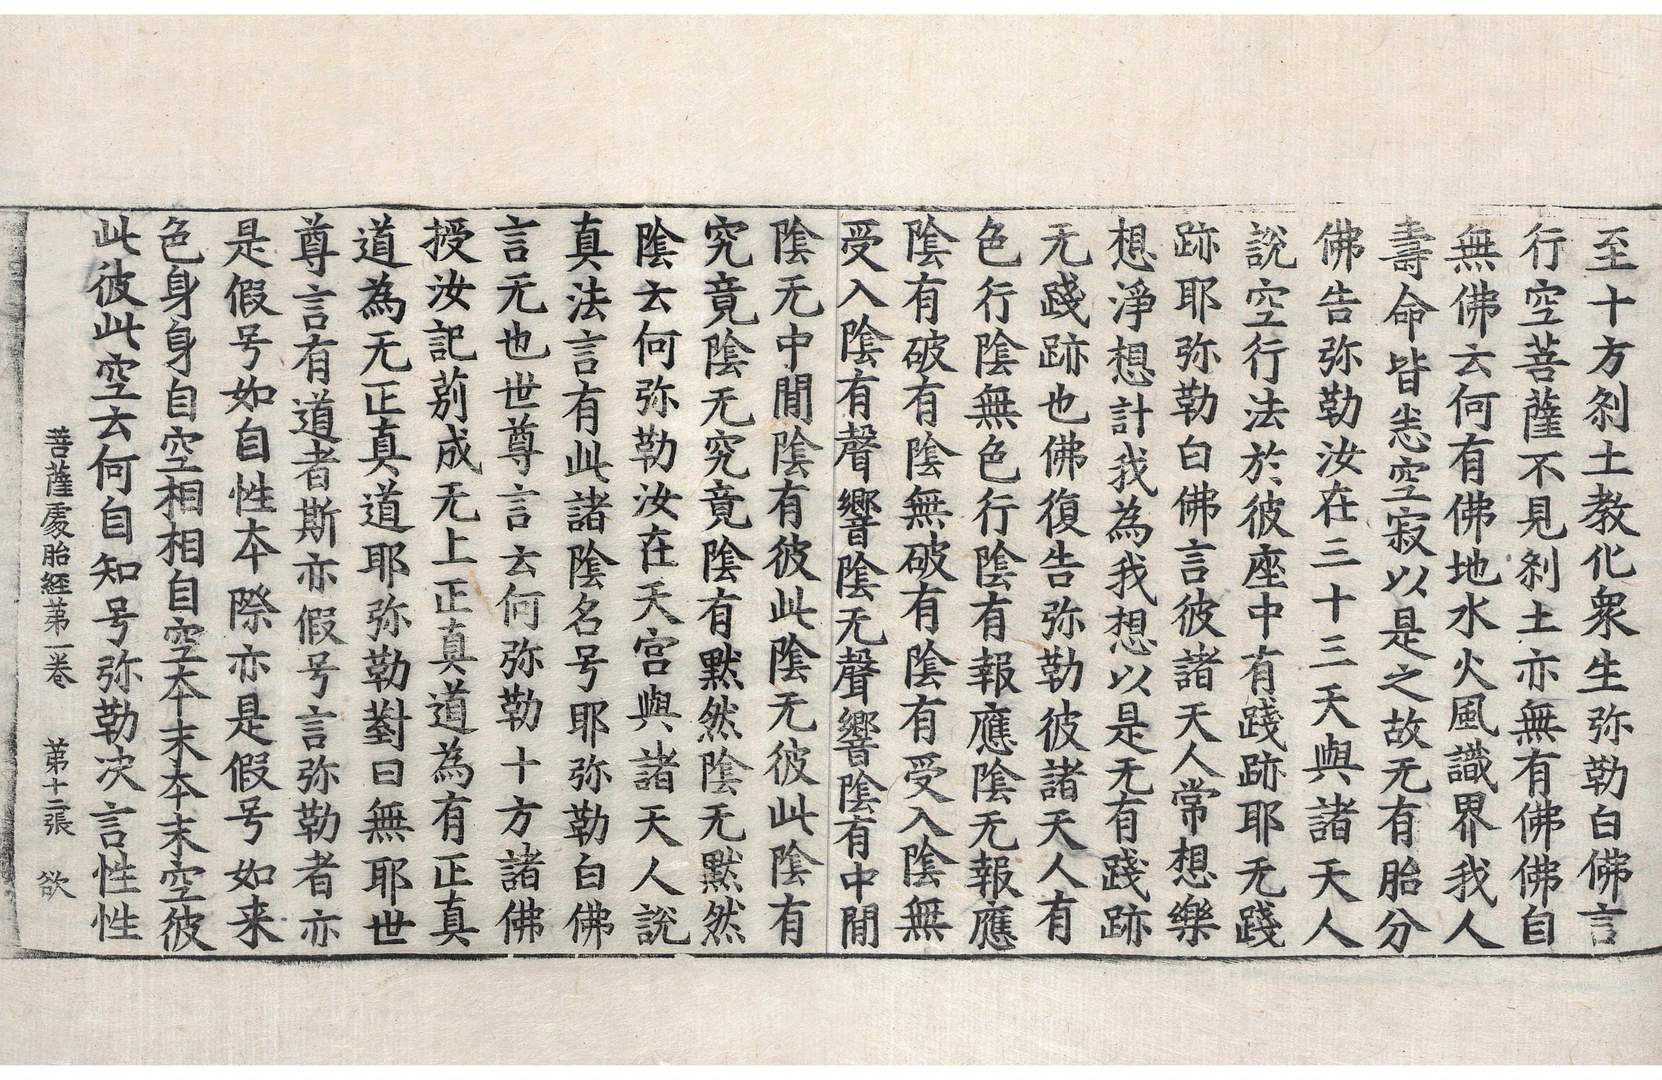 至十方刹土教化衆生弥勒白佛言
行空菩薩不見刹土亦無有佛佛自
無佛云何有佛地水火風識界我人
壽命皆悉空寂以是之故无有胎分
佛告弥勒汝在三十三天與諸天人
說空行法於彼座中有踐跡耶无踐
跡耶弥勒白佛言彼諸天人常想樂
想淨想計我為我想以是无有踐跡
无踐跡也佛復告弥勒彼諸天人有
色行陰無色行陰有報應陰无報應
陰有破有陰無破有陰有受入陰無
受入陰有聲響陰无聲響陰有中間
陰无中間陰有彼此陰无彼此陰有
究竟陰无究竟陰有默然陰无默然
陰云何弥勒汝在天宮與諸天人說
真法言有此諸陰名号耶弥勒白佛
言无也世尊言云何弥勒十方諸佛
授汝記莂成无上正真道為有正真
道為无正真道耶弥勒對曰無耶世
尊言有道者斯亦假号言弥勒者亦
是假号如自性本際亦是假号如来
色身身自空相相自空本末本末空彼
此彼此空云何自知号弥勒决言性性
菩薩處胎經第一卷　第十二張　欲